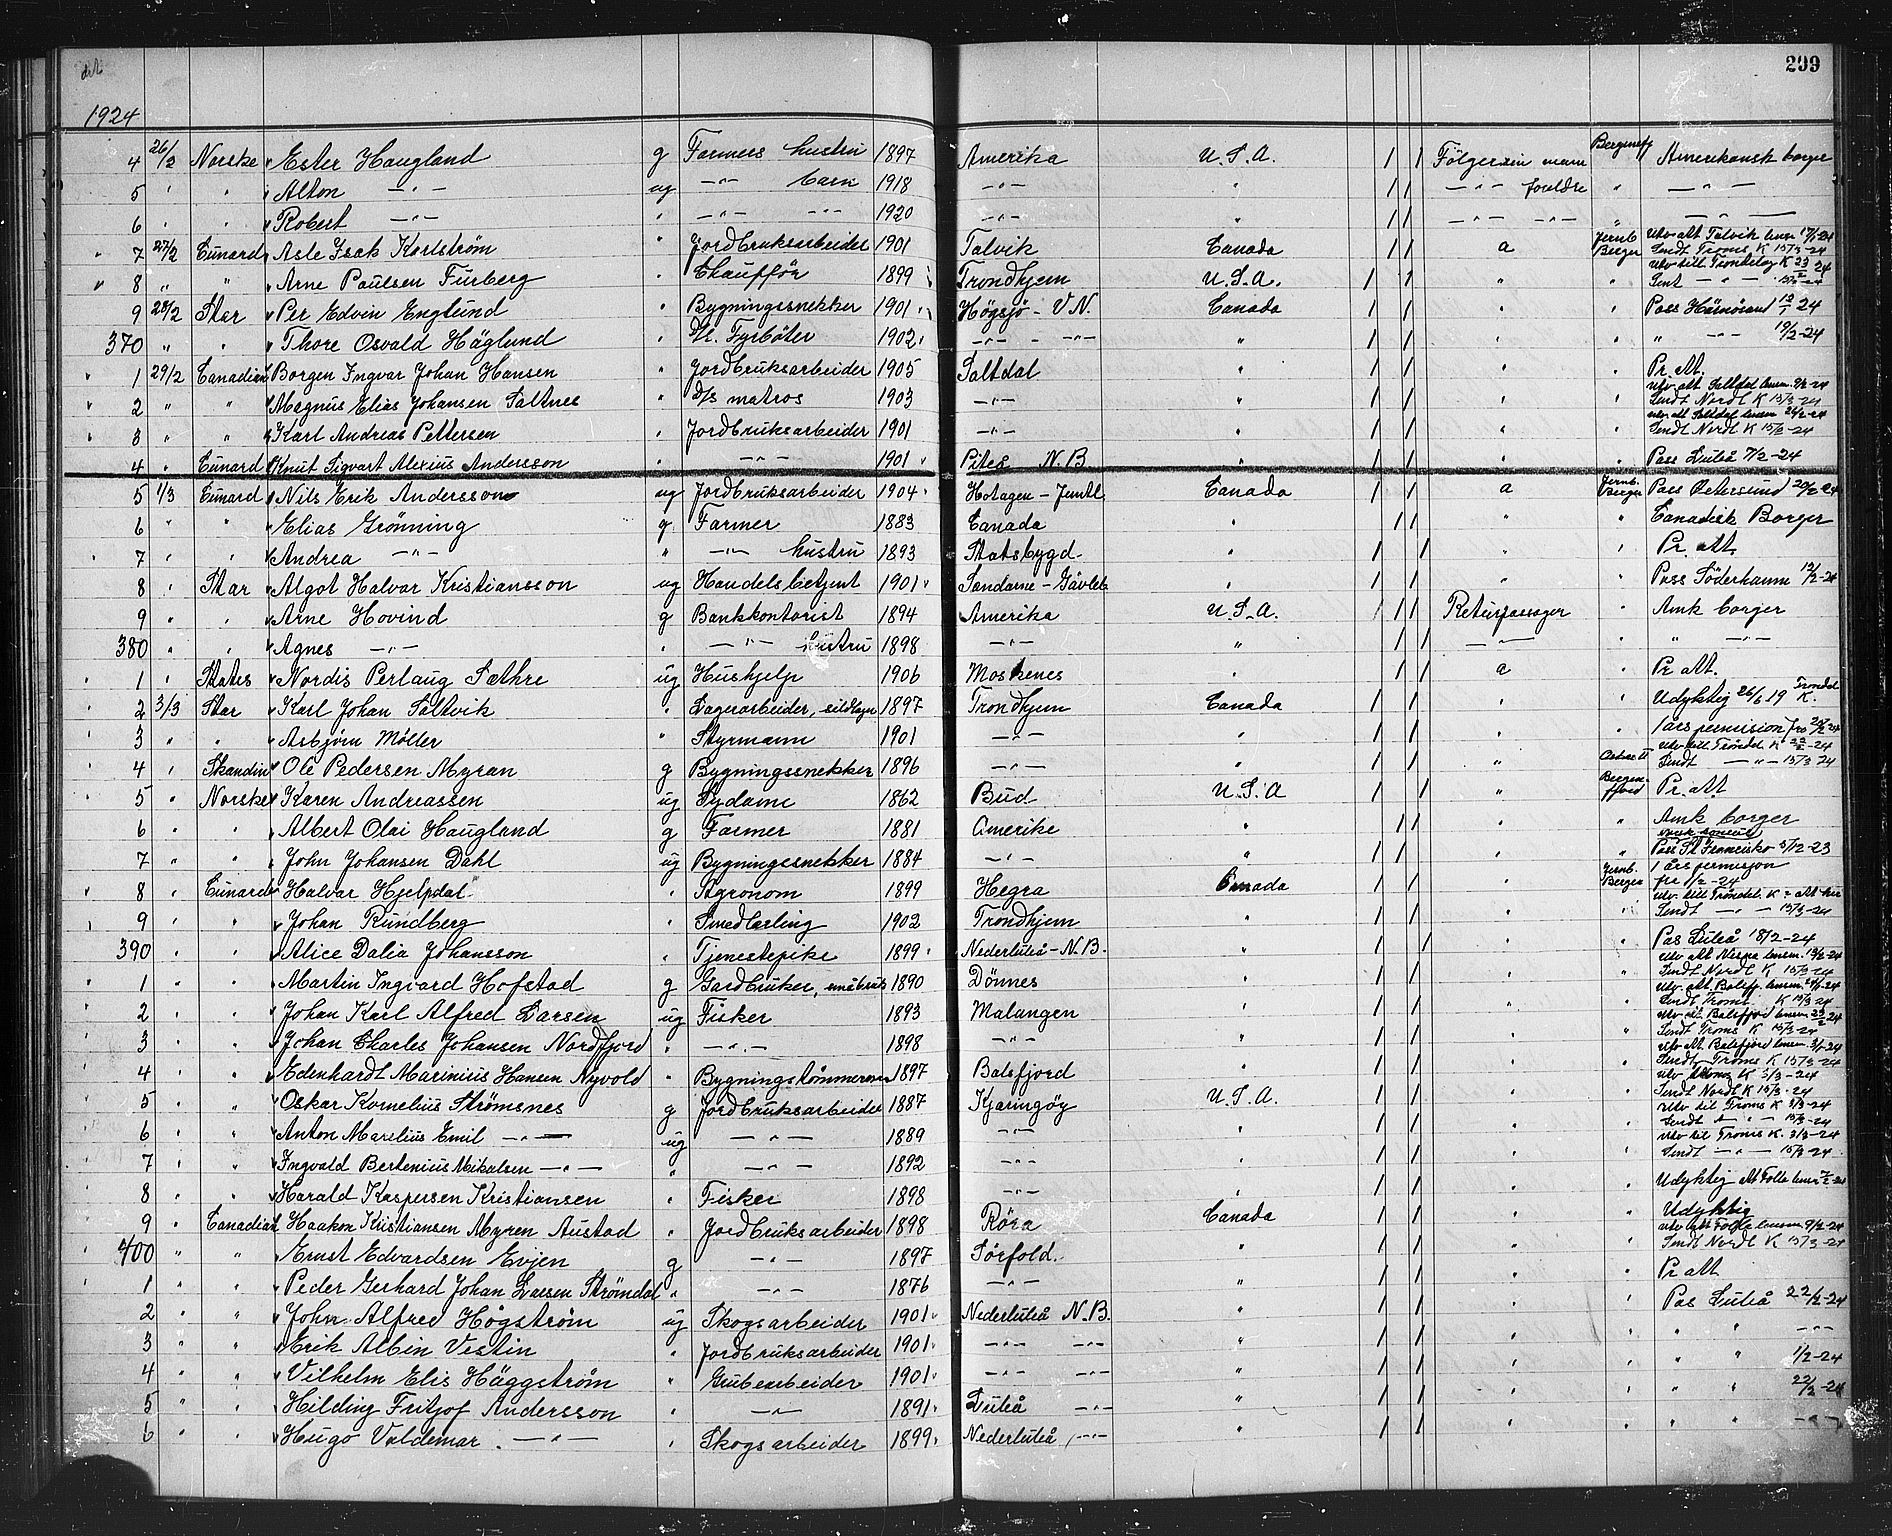 299
1924
4 26/2 Norske " Ester Haugland g Farmers hustru 1897 Amerika U.S.A. / / Følger sin mann Bergensfj Amerikansk borger
5 " " " Alton —"— ug —"— barn 1918 —"— " / / —"— foreldre " —"—
6 " " " Robert —"— " —"— —"— 1920 —"— " / / —"— —"— " —"—
7 27/2 Cunard " Asle Isak Karlstrøm " Jordbruksarbeider 1901 Talvik Canada / / a Jernb. Berger Utv att Talvik lensm 17/1-24 Sendt Troms K 15/3-24
8 " " " Arne Paulsen Furberg " Chauffør 1899 Trondhjem U.S.A. / / " " Utv till Trøndelag K 23/2 24 Sent —"— 15/3-24
9 28/2 Star " Per Edvin Englund " Bygningssnekker 1901 Högsjö - V.N. Canada / / " " Pass Härnösand 12/1 24
370 " " " Thore Osvald Häglund " Fyrbøter 1902 —"— - —"— " / / " " " —"— 19/2-24
1 29/2 Canadian " Borgen Ingvar Johan Hansen " Jordbruksarbeider 1905 Saltdal " / / " " Pr. att.
2 " " " Magnus Elias Johansen Saltnes " D/s matros 1903 —"— " / / " " Utv. att Saltdal lensm. 9/2-24 Sendt Nordl K 15/3-24
3 " " " Karl Andreas Pettersen " Jordbruksarbeider 1901 —"— " / / " " utv att Saltdal lensm 26/2-24 Sendt Nordl K 15/3-24
4 " Cunard " Knut Sigvart Alexius Andersson " —"— 1901 Piteå N.B " / / " " Pass Luleå 7/2-24
5 1/3 Cunard " Nils Erik Andersson ug Jordbruksarbeider 1904 Hotagen - Jemtl. Canada / / a Jernb. Berger Pass Østersund 20/2-24
6 " " " Elias Grønning g Farmer 1883 Canada " / / " " Canadisk Borger
7 " " " Andrea —"— " —"— hustru 1893 Statsbygd " / / " Pr. att
8 " Star " Algot Halvar Kristiansson ug Handelsbetjent 1901 Sandarne - Gävleb " / / " Pass Söderhamn 12/2-24
9 " " " Arne Hovind g Bankkontorist 1894 Amerika U.S.A. / / Returpassager " Amk borger
380 " " " Agnes —"— " —"— hustru 1898 —"— " / / —"— " " —"—
1 " States " Nordis Perlaug Sæthre ug Hushjelp 1906 Moskenes " / / a " Pr. att.
2 3/3 Star " Karl Johan Saltvik " Lagerarbeider, sildlager 1897 Trondhjem Canada / / " " Udyktig 26/6 19 Trondel K.
3 " " " Asbjørn Møller " Styrmann 1901 —"— " / / " " 1 års permision fra 20/2-24
4 " Skandin " Ole Pedersen Myran g Bygningssnekker 1896 —"— " / / " Utv till Trøndel K 22/2-24 Sendt —"— 15/3 24
5 " Norske " Karen Andreassen ug Sydame 1862 Bud U.S.A / / " Bergensfjord Pr. att
6 " " " Albert Olai Haugland g Farmer 1881 Amerika " / / " " Amk borger
7 " " " John Johansen Dahl ug Bygningssnekker 1884 —"— " / / " " Pass St Francisko 3/12-23
8 " Cunard " Halvar Hjelpdal " Agronom 1899 Hegra Canada / / " Jernb. Berger 1 års permisjon fra 1/2-24
9 " " " Johan Rundberg " Smedlærling 1902 Trondhjem " / / " " Utv. till Trøndel. K Sendt —"— 15/3-24
390 " " " Alice Dalia Johansson " Tjenestepike 1899 Nederluleå - N.B. " / / " " Pas Luleå 18/2-24
1 " " " Martin Ingvard Hofstad g Gårdbruker, småbruk 1890 Dönnes " / / " " Utv att Nesna lensm. 19/2-24 Sendt Nordl K 15/3-24
2 " " " Johan Karl Alfred Larsen ug Fisker 1893 Malangen " / / " " Utv. att. Balsfj. lensm. Sendt Troms K 15/3 24
3 " " " Johan Charles Johansen Nordfjord " —"— 1898 —"— " / / " " Utv att Balsfjord lensm 23/2 24 Sendt Troms K 15/3-24
4 " " " Edenhardt Marinius Hansen Nyvold " Bygningstömmermann 1897 Balsfjord " / / " " Utv att. Balsfjord lensm. 3/1-24 Sendt Troms K 15/3-24
5 " " " Oskar Kornelius Strømsnes g Jordbruksarbeider 1887 Kjæringøy U.S.A. / / " " Utv Troms K 3/3-24 Sendt Nordl K 15/3-24
6 " " " Anton Marelius Emil —"— ug —"— 1889 —"— " / / " " Utv til Troms K 3/3-24 Sendt —"— 15/3-24
7 " " " Ingvald Bertenius Mikalsen —"— " —"— 1892 —"— " / / " " Utv til Troms K. 3/3-24 Sendt —"— 15/3-24
8 " " " Harald Kaspersen Kristiansen " Fisker 1898 —"— " / / " " Udyktig att Folla lensm
9 " Canadian " Haakon Kristiansen Myren Austad " Jordbruksarbeider 1898 Röra Canada / / " " Udyktig
400 " " " Ernst Edvardsen Evjen g —"— 1897 Sörfold. " / / " " Utv att Folla lensm 9/2-24 Sendt Nordl K 15/3-24
1 " " " Peder Gerhard Johan Larsen Strömdal " —"— 1876 —"— " / / " Pr att
2 " " " John Alfred Högström ug Skogsarbeider 1901 Nederluleå N.B. " / / " " Pas Luleå 22/2-24
3 " " " Erik Albin Vestin " Jordbruksarbeider 1901 —"— —"— " / / " " " " —"—
4 " " " Vilhelm Elis Häggström " Grubearbeider 1901 —"— —"— " / / " " " " 1/2-24
5 " " " Hilding Fritjof Andersson " —"— 1891 Luleå —"— " / / " " " " 22/2-24
6 " " " Hugo Valdemar —"— " Skogsarbeider 1899 Nederluleå —"— " / / " " " " —"—